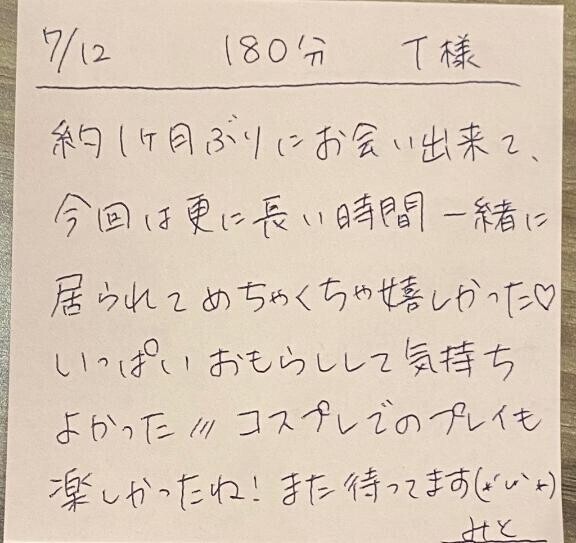 7/12 180分 T様
約1ヶ月ぶりにお会い出来て、
今回は更に長い時間一緒に
居られてめちゃくちゃ嬉しかった♡
いっぱいおもらしして気持ち
よかった/// コスプレでのプレイも
楽しかったね! また待ってます(*˙ᵕ˙*)
みと